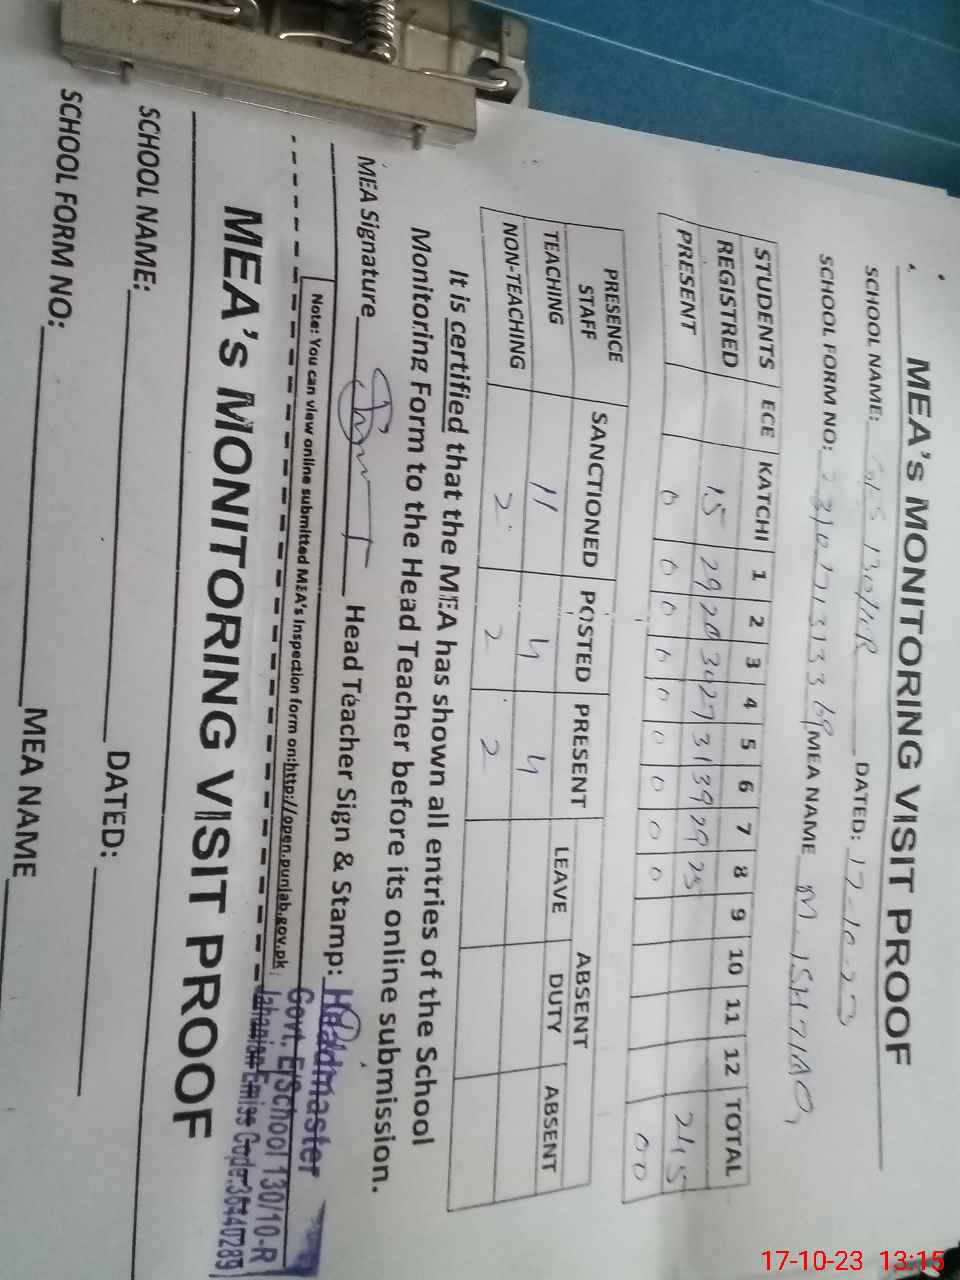 MEA's MONITORING VISIT PROOF
SCHOOL NAME: 130/10R DATED: 17-10-23
SCHOOL FORM NO: MEA NAME M. ISHTIAQ
STUDENTS ECE KATCHI 1 2 3 4 5 6 7 8 9 10 11 12 TOTAL
REGISTRED 15 29 20 30 27 31 39 29 25 245
PRESENT 0 0 0 0 0 0 0 0 0 00
PRESENCE STAFF SANCTIONED POSTED PRESENT ABSENT
LEAVE DUTY ABSENT
TEACHING 11 4 4
NON-TEACHING 2 2 2
It is certified that the MEA has shown all entries of the School
Monitoring Form to the Head Teacher before its online submission.
MEA Signature Head Teacher Sign & Stamp: Headmaster
Govt. E/School 130/10-R
Jahanian Emiss Code:36440289
Note: You can view online submitted MEA's Inspection form on:http://open.punjab.gov.pk
MEA's MONITORING VISIT PROOF
SCHOOL NAME: DATED:
SCHOOL FORM NO: MEA NAME
17-10-23 13:15